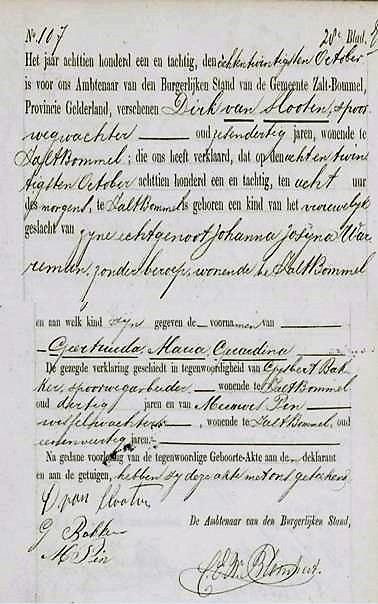 No. 107 28e Blad.
Het jaar achttien honderd een en tachtig, den achtentwintigsten October
is voor ons Ambtenaar van den Burgerlijken Stand van de Gemeente Zalt-Bommel,
Provincie Gelderland, verschenen Dirk van Slooten, spoor
wegwachter oud zesendertig jaren, wonende te
ZaltBommel; die ons heeft verklaard, dat op den acht en twin
tigsten October achttien honderd een en tachtig, ten acht uur
des morgens, te ZaltBommel is geboren een kind van het vrouwelijk
geslacht van zijne echtgenoot Johanna Josina War
reman, zonder beroep, wonende te ZaltBommel
en aan welk kind zijn gegeven de voornamen van
Geertruida Maria Gerardina
De gezegde verklaring geschiedt in tegenwoordigheid van Gijsbert Bak
ker, spoorwegarbeider wonende te ZaltBommel
oud dertig jaren en van Meeuwis Pin
wisselwachter, wonende te ZaltBommel, oud
jaren.
Na gedane voorlezing van de tegenwoordige Geboorte-Akte aan de deklarant
en aan de getuigen, hebben zij deze akte met ons geteekend
D van Slooten
De Ambtenaar van den Burgerlijken Stand,
G Bakker
M Pin